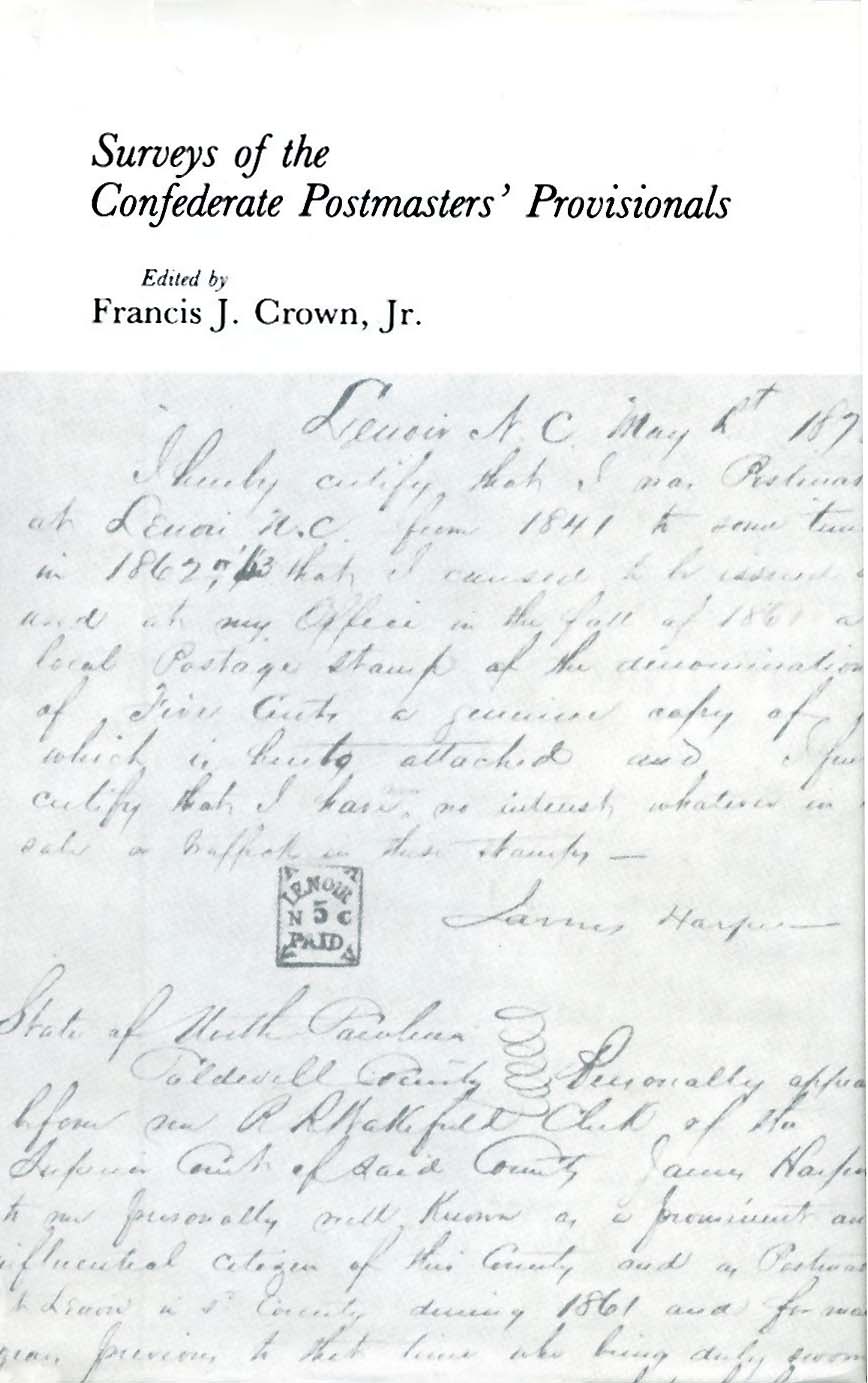 Surveys of the
Confederate Postmasters' Provisionals
Edited by
Francis J. Crown, Jr.
Lenoir N. C. May 187
I hereby certify that I was Postmas
at Lenoir N.C. from 1841 to some time
in 1862 or '63 that I caused to be issued
and at my Office in the fall of 1861 a
local Postage Stamp of the denomination
of Five Cents a genuine copy of
which is hereto attached and I fur
certify that I have no interest whatever in
sale or traffick in these stamps —
LENOIR
N 5 C
PAID
James Harper
State of North Carolina
Caldwell County Personally appea
before me R R Wakefield Clerk of the
Superior Court of said County James Harper
to me personally well Known as a prominent an
influential citizen of this County and as Postmas
t Lenoir in sd County during 1861 and for man
years previous to that time who being duly sworn